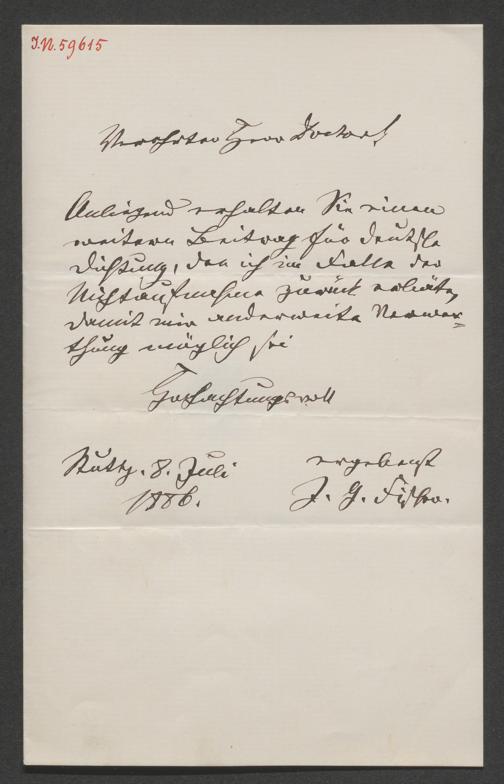 J.N. 59615
Verehrter Herr Doctor!
Anliegend erhalten Sie einen
weitern Beitrag für deutsche
Dichtung, den ich im Falle der
Nichtaufnahme zurück erbitte,
damit mir anderweite Verwer-
thung möglich sei
Hochachtungsvoll
Stuttg. 8. Juli
1886.
ergebenst
J. G. Fischer.